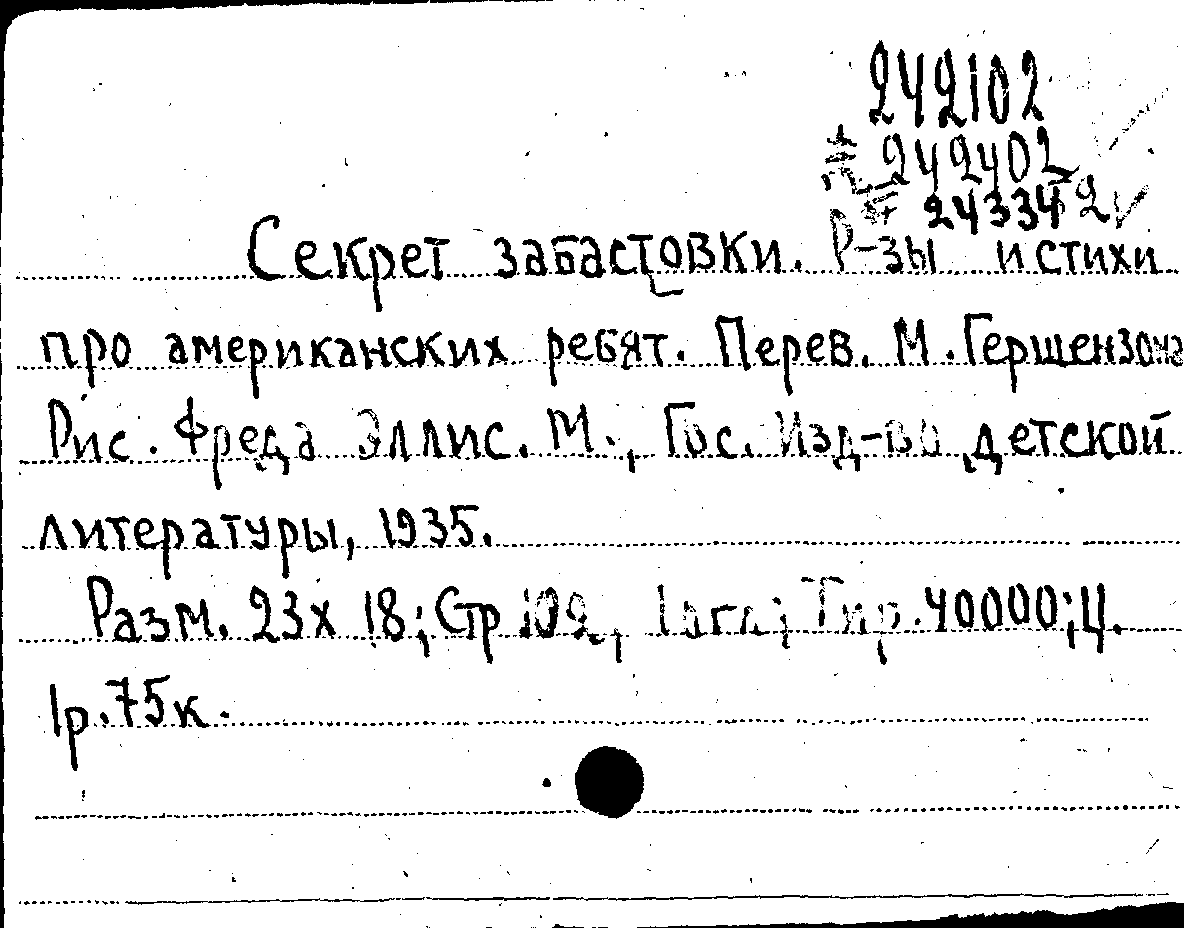 242102
242402
243342
Секрет забастовки. Р-зы и стихи
про американских ребят. Перев. М. Гершензона
Рис. Фреда Эллис. М., Гос. Изд-во детской
литературы, 1935.
Разм. 23х18; Стр 102, Тир. 40000; Ц.
1р. 75к.